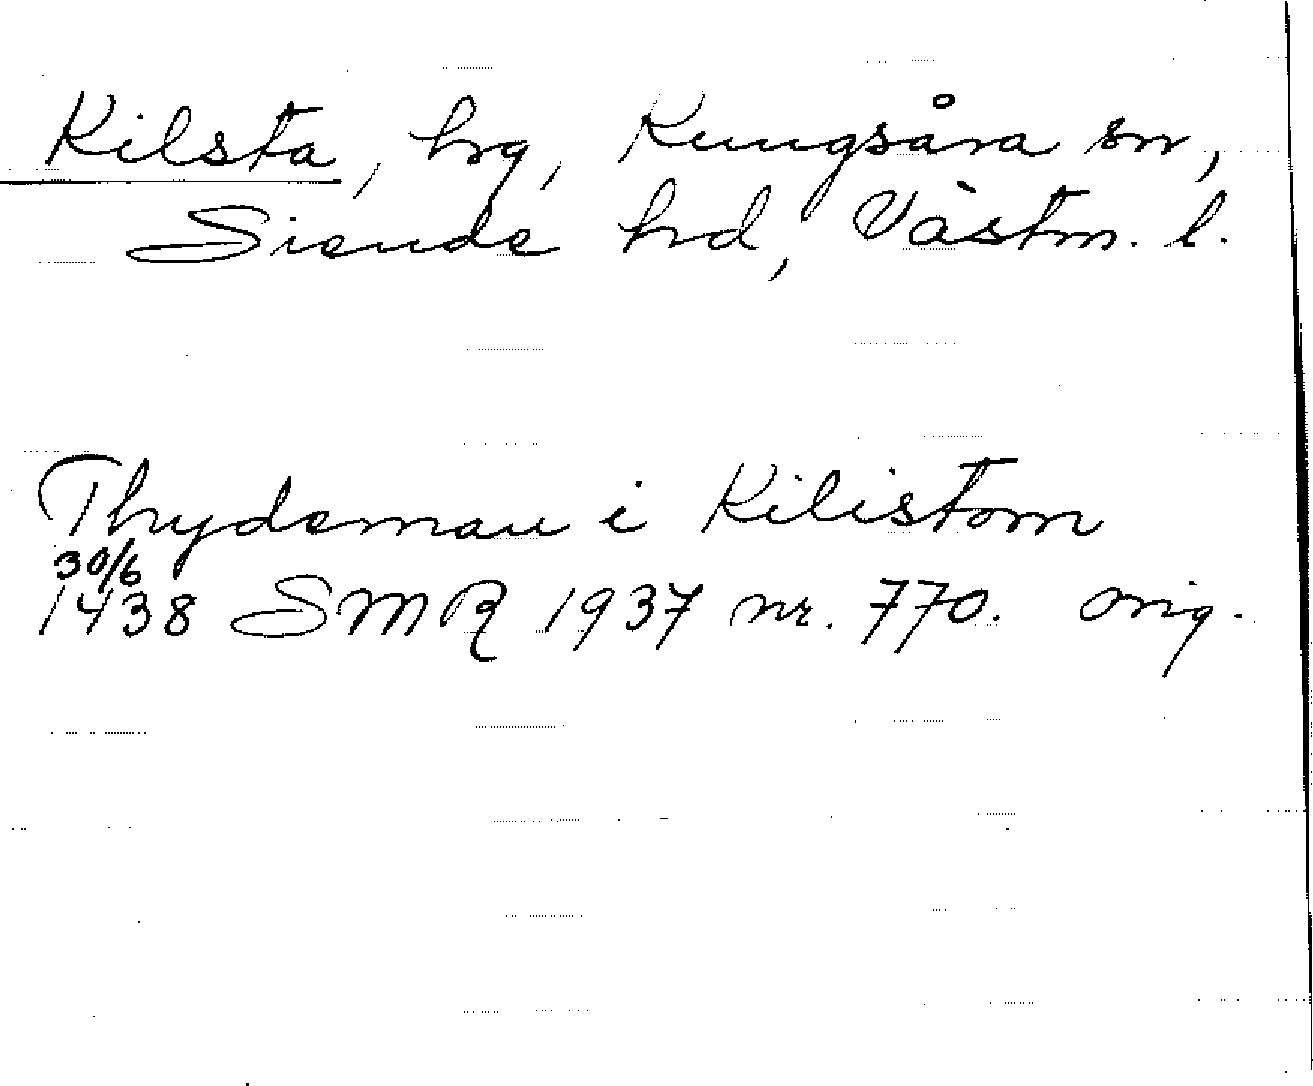 Kilsta, hrg, Kungsåra sn,
Siende hrd, Västm. l.
Thydeman i Kilistom
30/6
1438 SMR 1937 nr. 770. orig.